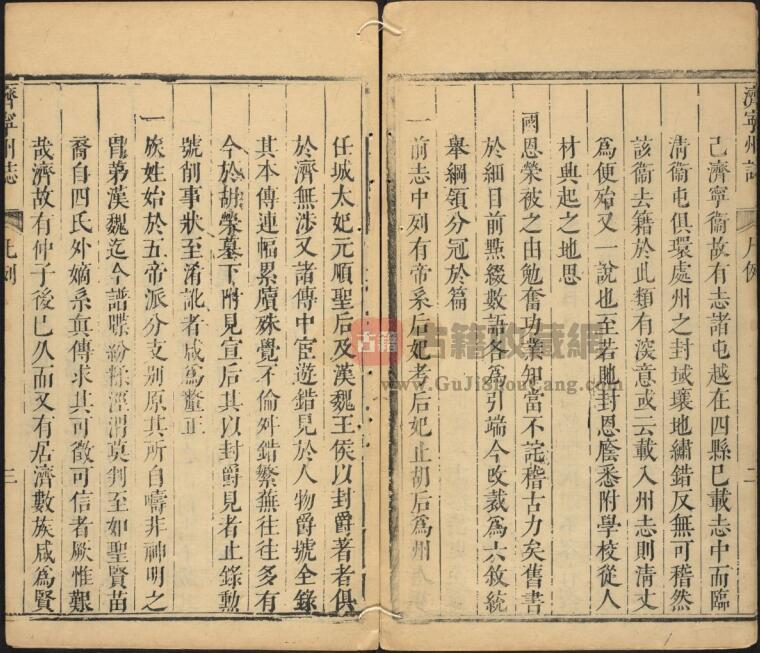 濟寧州志
凡例
二
己濟寧衞故有志諸屯越在四縣巳載志中而臨
清衞屯俱環處州之封域壤地繡錯反無可稽然
該衞去籍於此類有深意或云載入州志則清丈
爲便殆又一說也至若貤封恩廕悉附學校從人
材典起之地思
國恩榮被之由勉奮功業知當不詫稽古力矣舊書
於細目前㸃綴數語各爲引端今攺裁爲六敘統
舉綱領分冠於篇
一前志中列有帝系后妃考后妃止胡后爲州
任城太妃元順聖后及漢魏王侯以封爵著者俱
於濟無涉又諸傳中宦遊錯見於人物爵號全錄
其本傳連幅累牘殊覺不倫舛錯繁蕪往往多有
今於胡榮墓下附見宣后其以封爵見者止錄勳
號削事狀至淆訛者咸爲釐正
一族姓始於五帝派分支别原其所自疇非神明之
冑第漢魏迄今譜牒紛糅涇渭莫判至如聖賢苗
裔自四氏外嫡系真傳求其可徵可信者厥惟艱
哉濟故有仲子後巳久而又有居濟數族咸爲賢
濟寧州志
凡例
三
古籍
古籍收藏網
www.GuJiShouCang.com